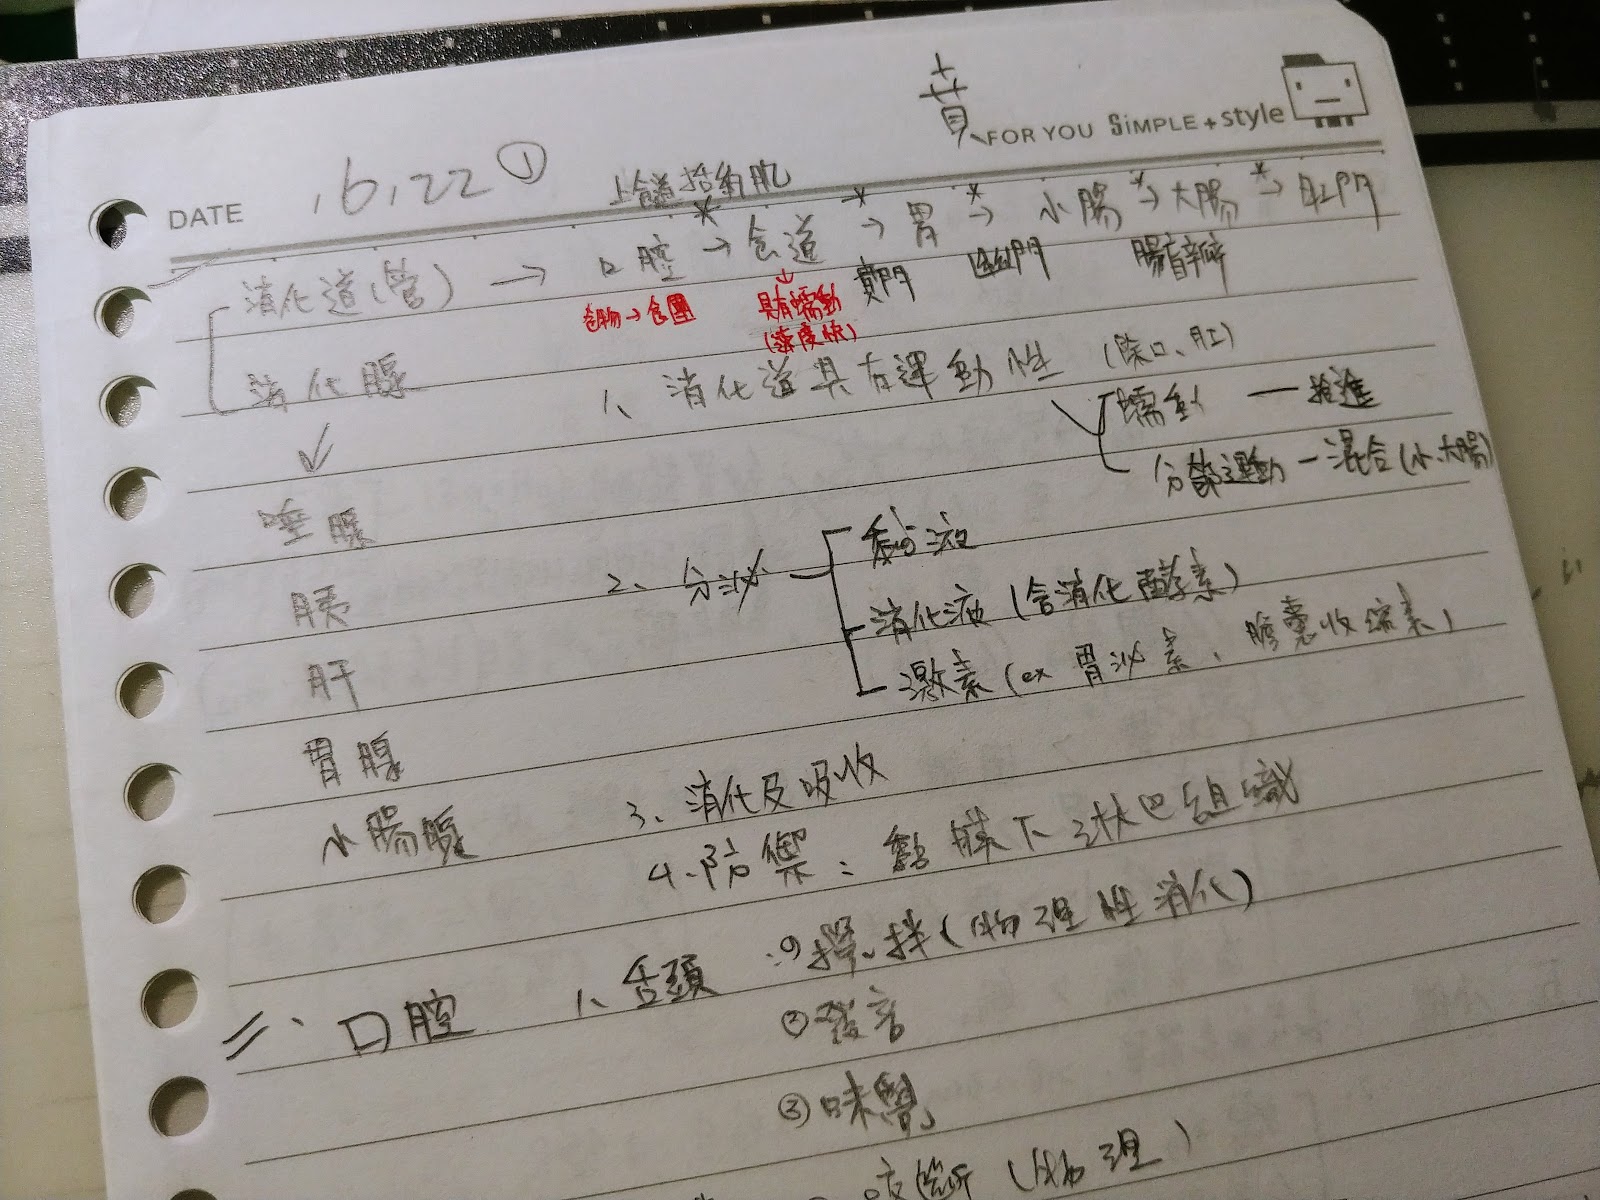 賁
FOR YOU SiMPLE + style
DATE .6.22 ①
上食道括約肌
消化道(管) → 口腔 → 食道 → 胃 → 小腸 → 大腸 → 肛門
賁門 幽門 腸首瓣
食物→食團 具有蠕動
(速度快)
消化腺 1、消化道具有運動性 (除口、肛)
蠕動 — 推進
分節運動 — 混合(小、大腸)
唾腺
胰 2、分泌 黏液
消化液 (含消化酵素)
肝 激素 (ex 胃泌素、膽囊收縮素)
胃腺 3、消化及吸收
小腸腺 4、防禦:黏膜下淋巴組織
二、口腔 1、舌頭:①攪拌(物理性消化)
②發音
③味覺
(物理)